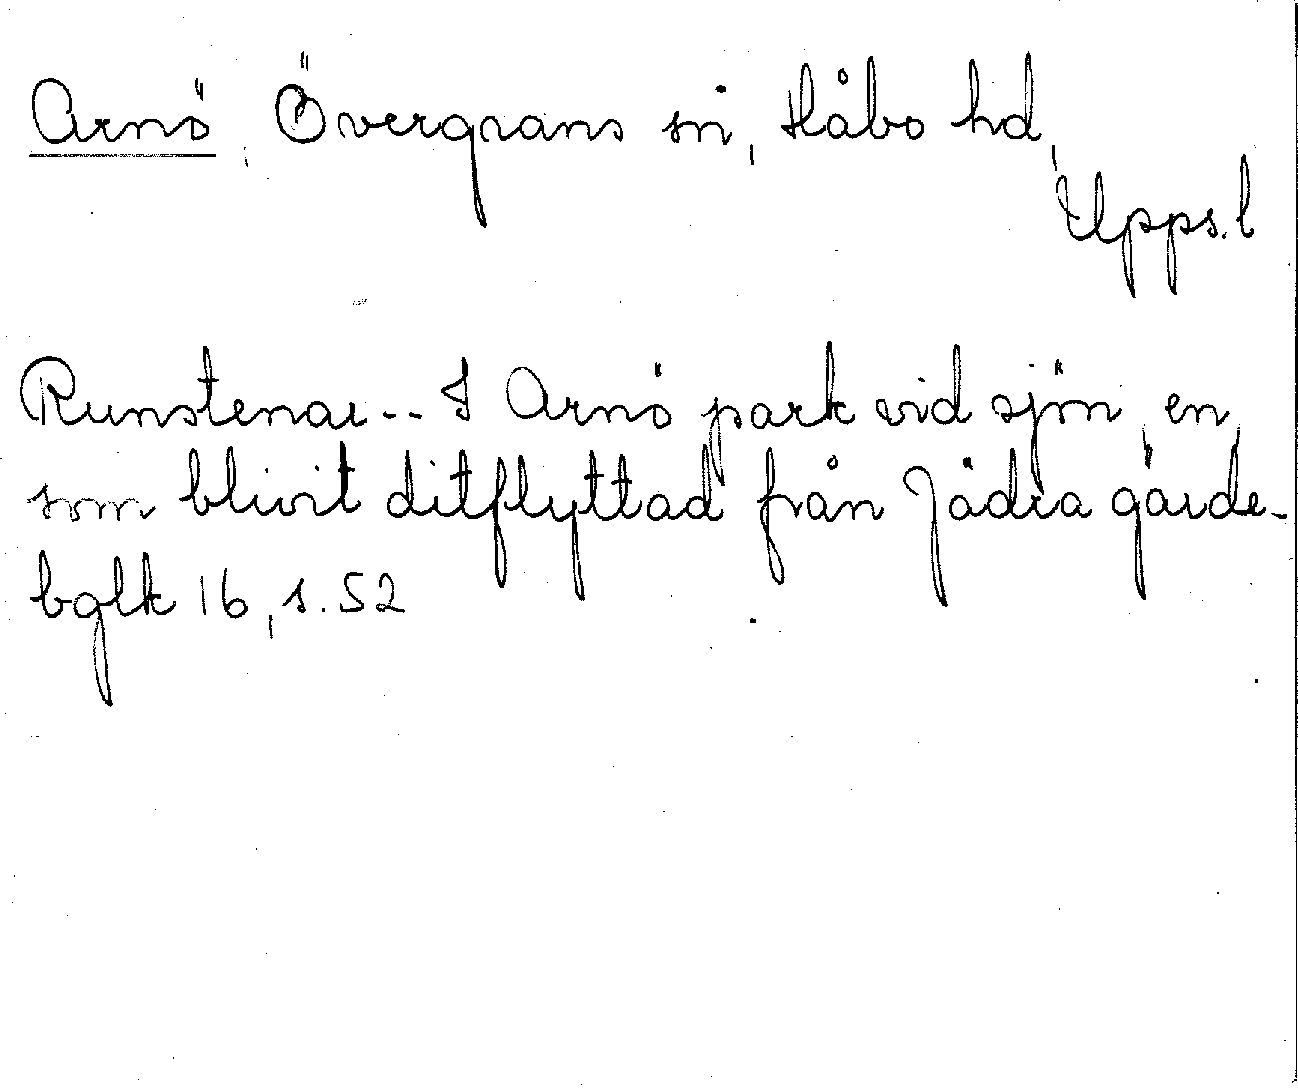 Arnö, Övergrans sn, Håbo hd,
Upps. l
Runstenar -- I Arnö park vid sjön, en,
som blivit ditflyttad från Jädra gärde-
bglk 16, s. 52